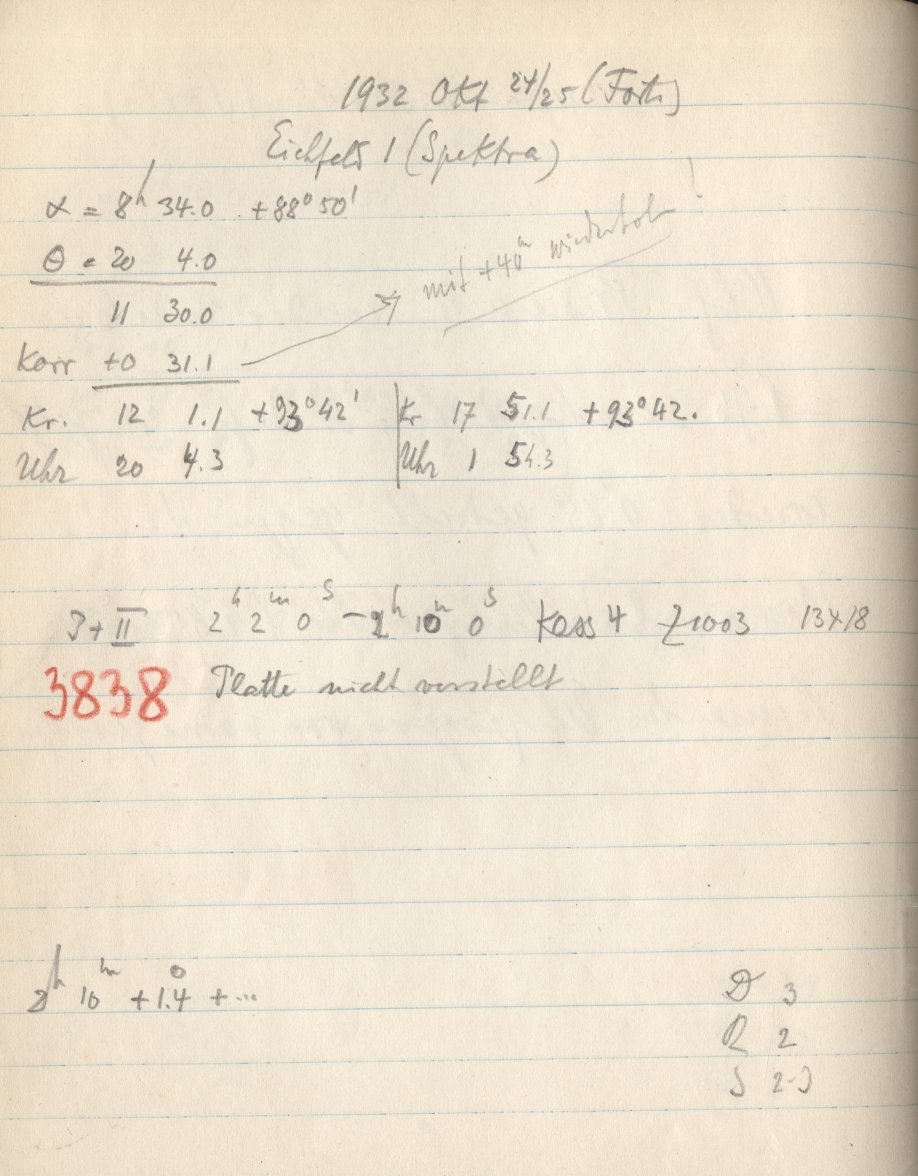 1932 Okt 24/25 (Forts)
Eichfeld 1 (Spektra)
α = 8h 34.0 +88°50'
θ = 20 4.0
11 30.0
mit +40m wiederholen!
Korr +0 31.1
Kr. 12 1.1 +93°42' Kr 17 51.1 +93°42.
Uhr 20 4.3 Uhr 1 54.3
I+II 2h 2m 0s – 2h 10m 0s Kass 4 Z1003 13×18
3838 Platte nicht verstellt
2h 10m +1.4° + ...
D 3
R 2
S 2-3